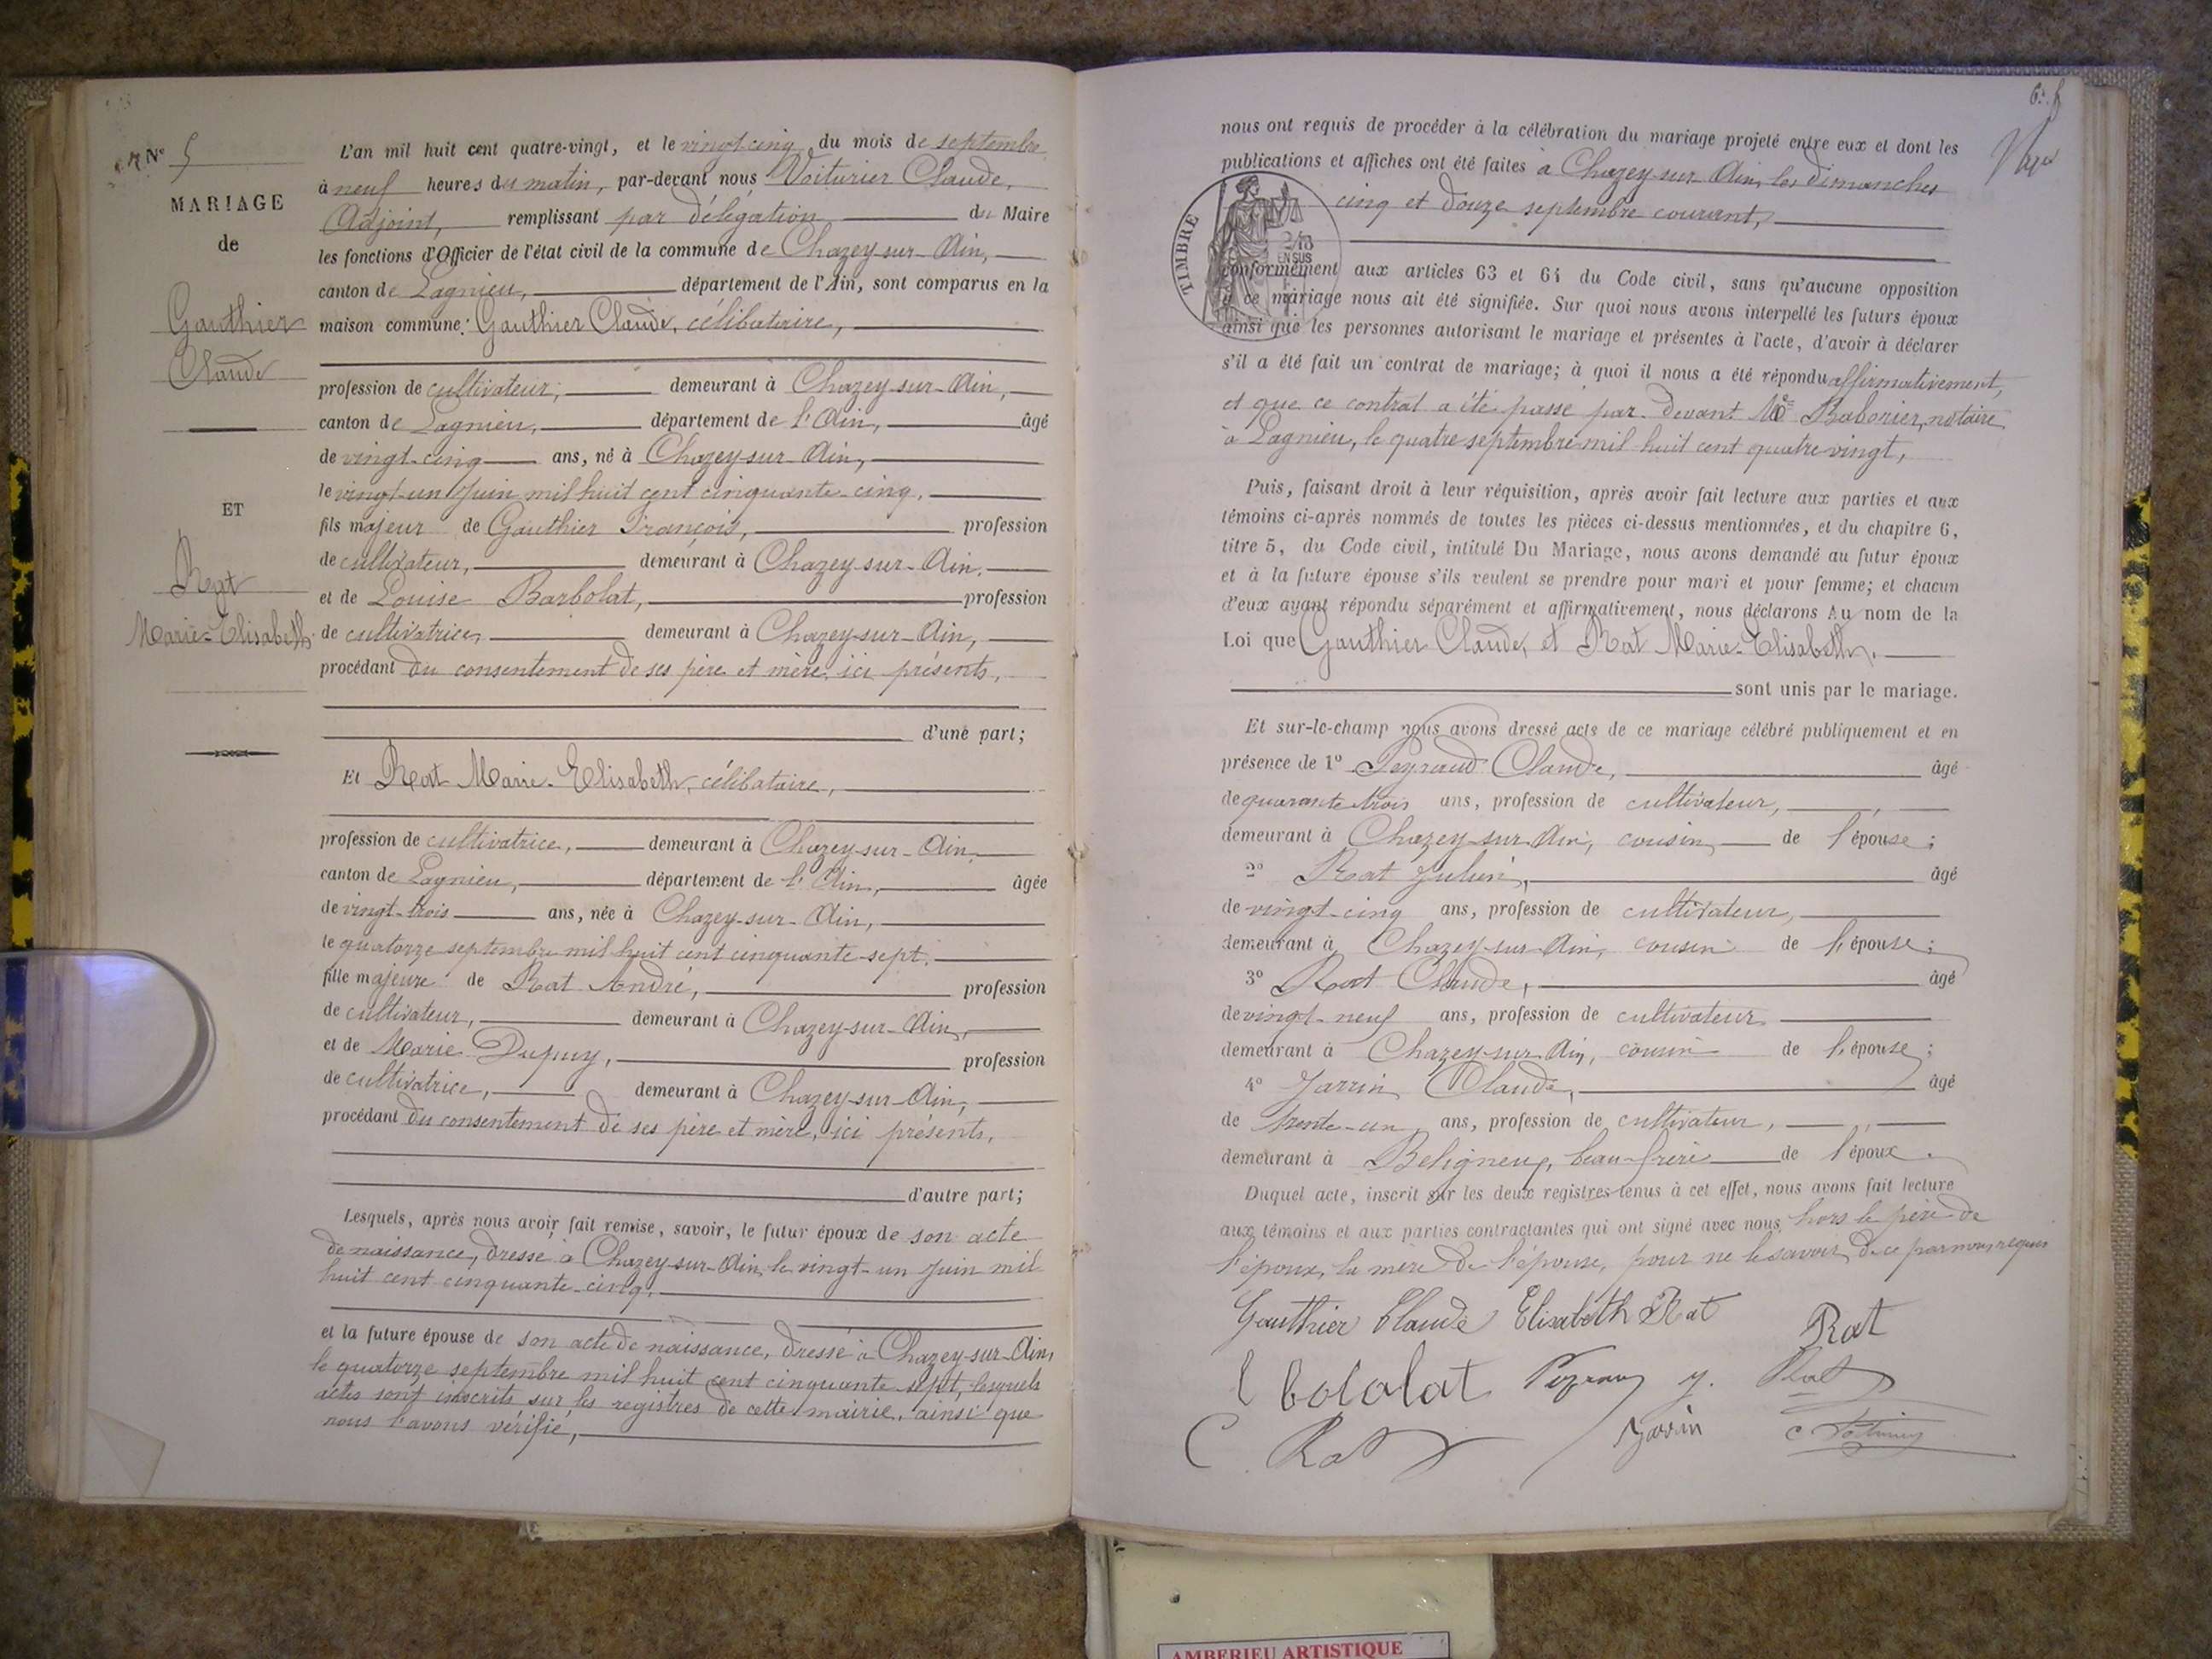 Nº 5
MARIAGE
de
Gauthier
Claude
ET
Rat
Marie-Elisabeth
L'an mil huit cent quatre-vingt, et le vingt cinq du mois de septembre
à neuf heures du matin, par-devant nous Voiturier Claude,
Adjoint, remplissant par délégation du Maire
les fonctions d'Officier de l'état civil de la commune de Chazey-sur-Ain,
canton de Lagnieu, département de l'Ain, sont comparus en la
maison commune: Gauthier Claude, célibataire,
profession de cultivateur, demeurant à Chazey-sur-Ain,
canton de Lagnieu, département de l'Ain, âgé
de vingt-cinq ans, né à Chazey-sur-Ain,
le vingt-un Juin mil huit cent cinquante-cinq,
fils majeur de Gauthier François, profession
de cultivateur, demeurant à Chazey-sur-Ain,
et de Louise Barbolat, profession
de cultivatrice, demeurant à Chazey-sur-Ain,
procédant du consentement de ses père et mère, ici présents,
d'une part;
Et Rat Marie-Elisabeth, célibataire,
profession de cultivatrice, demeurant à Chazey-sur-Ain,
canton de Lagnieu, département de l'Ain, âgée
de vingt-trois ans, née à Chazey-sur-Ain,
le quatorze septembre mil huit cent cinquante-sept,
fille majeure de Rat André, profession
de cultivateur, demeurant à Chazey-sur-Ain,
et de Marie Dupuy, profession
de cultivatrice, demeurant à Chazey-sur-Ain,
procédant du consentement de ses père et mère, ici présents,
d'autre part;
Lesquels, après nous avoir fait remise, savoir, le futur époux de son acte
de naissance, dressé à Chazey-sur-Ain, le vingt-un juin mil
huit cent cinquante-cinq,
et la future épouse de son acte de naissance, dressé à Chazey-sur-Ain,
le quatorze septembre mil huit cent cinquante sept, lesquels
actes sont inscrits sur les registres de cette mairie, ainsi que
nous l'avons vérifié,
nous ont requis de procéder à la célébration du mariage projeté entre eux et dont les
publications et affiches ont été faites à Chazey-sur-Ain, les dimanches
cinq et douze septembre courant,
TIMBRE
EN SUS
conformément aux articles 63 et 64 du Code civil, sans qu'aucune opposition
à ce mariage nous ait été signifiée. Sur quoi nous avons interpellé les futurs époux
ainsi que les personnes autorisant le mariage et présentes à l'acte, d'avoir à déclarer
s'il a été fait un contrat de mariage; à quoi il nous a été répondu affirmativement,
et que ce contrat a été passé par devant Me Baborier, notaire
à Lagnieu, le quatre septembre mil huit cent quatre vingt,
Puis, faisant droit à leur réquisition, après avoir fait lecture aux parties et aux
témoins ci-après nommés de toutes les pièces ci-dessus mentionnées, et du chapitre 6,
titre 5, du Code civil, intitulé Du Mariage, nous avons demandé au futur époux
et à la future épouse s'ils veulent se prendre pour mari et pour femme; et chacun
d'eux ayant répondu séparément et affirmativement, nous déclarons Au nom de la
Loi que Gauthier Claude, et Rat Marie-Elisabeth,
sont unis par le mariage.
Et sur-le-champ nous avons dressé acte de ce mariage célébré publiquement et en
présence de 1º Peyraud Claude, âgé
de quarante trois ans, profession de cultivateur,
demeurant à Chazey sur Ain, cousin de l'épouse;
2º Rat Julien, âgé
de vingt-cinq ans, profession de cultivateur,
demeurant à Chazey-sur-Ain, cousin de l'épouse;
3º Rat Claude, âgé
de vingt-neuf ans, profession de cultivateur
demeurant à Chazey-sur-Ain, cousin de l'épouse;
4º Jarrin Claude, âgé
de trente-un ans, profession de cultivateur,
demeurant à Beligneux, beau-frère de l'époux.
Duquel acte, inscrit sur les deux registres tenus à cet effet, nous avons fait lecture
aux témoins et aux parties contractantes qui ont signé avec nous, hors le père de
l'époux, la mère de l'épouse, pour ne le savoir, de ce par nous requis
Gauthier Claude Elisabeth Rat Rat
J. Rat
C Rat Jarrin
AMBERIEU ARTISTIQUE